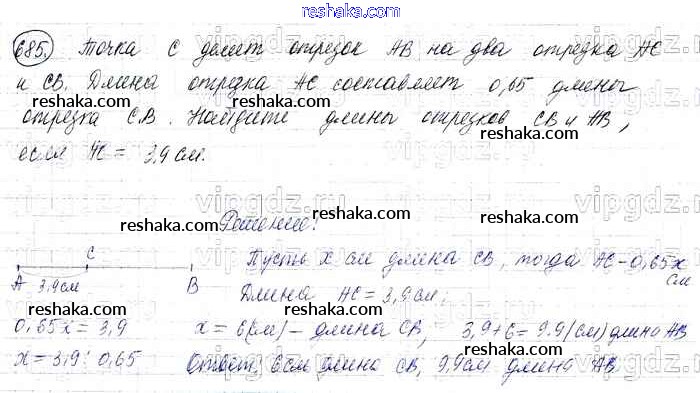 reshaka.com
685. Точка С делит отрезок АВ на два отрезка АС
и СВ. Длина отрезка АС составляет 0,65 длины
отрезка СВ. Найдите длины отрезков СВ и АВ,
если АС = 3,9 см.
Решение:
Пусть х см длина СВ, тогда АС - 0,65х см
Длина АС = 3,9 см.
A C B
3,9см
0,65х = 3,9 х = 6(см) - длина СВ, 3,9+6= 9.9(см) длина АВ
х = 3,9 : 0,65 Ответ, 6 см длина СВ, 9,9см длина АВ
reshaka.com
vipgdz.com